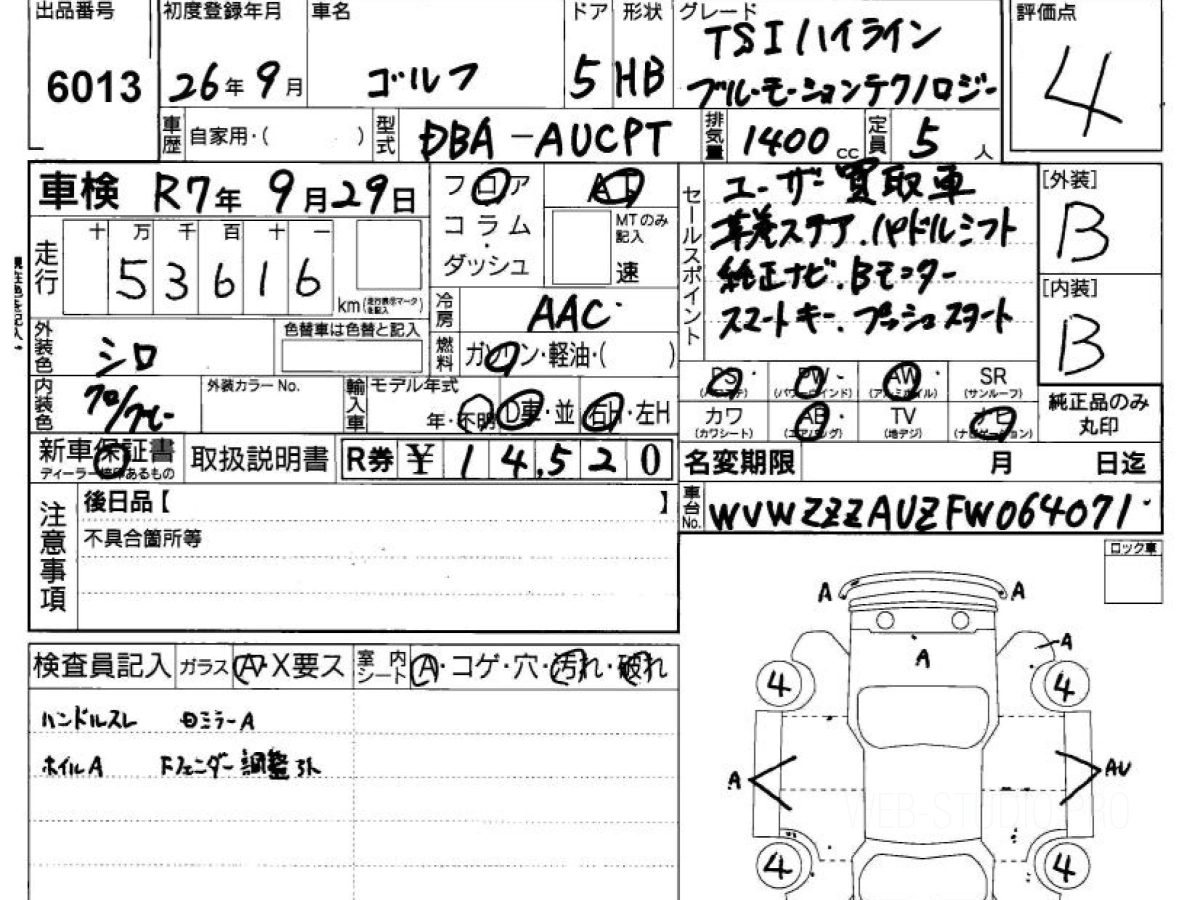 出品番号 初度登録年月 車名 ドア 形状 グレード 評価点
6013 26年 9月 ゴルフ 5 HB TSIハイライン
ブルーモーションテクノロジー 4
車歴 自家用・( ) 型式 DBA-AUCPT 排気量 1400cc 定員 5人
車検 R7年 9月29日 フロア AT
コラム
・
ダッシュ MTのみ記入 速
セールスポイント ユーザー買取車
革巻ステア.パドルシフト
純正ナビ.Bモニター
スマートキー.プッシュスタート
[外装] B
[内装] B
走行 十 万 千 百 十 一
5 3 6 1 6 km(走行表示マークを記入)
現在色を記入→
冷房 AAC
外装色 シロ 色替車は色替と記入 燃料 ガソリン・軽油・( )
内装色 クロ/グレー 外装カラーNo. 輸入車 モデル年式 年・不明 D車・並 右H・左H
PS(パワステ) PW(パワーウインド) AW(アルミホイル) SR(サンルーフ)
カワ(カワシート) AB(エアバッグ) TV(地デジ) ナビ(ナビゲーション) 純正品のみ丸印
新車保証書 ディーラー捺印あるもの 取扱説明書 R券 ¥ 1 4,5 2 0 名変期限 月 日迄
車台No. WVWZZZAUZFW064071
注意事項 後日品【 】
不具合箇所等
ロック車
検査員記入 ガラス A・X要ス 室内シート A・コゲ・穴・汚れ・破れ
ハンドルスレ 日ミラーA
ホイルA Fフェンダー調整跡
A A
A A
4 4
A AU
4 4
WEB-STUDIO.PRO